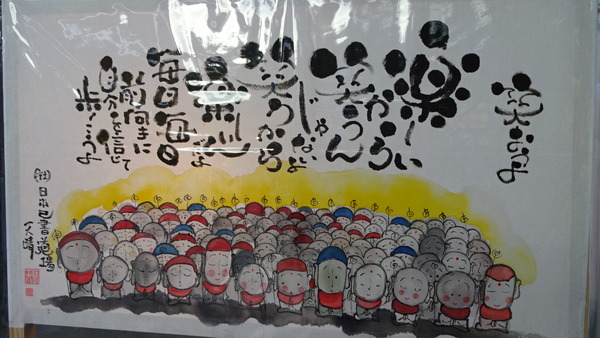 笑おうよ
楽しい
から
笑うん
じゃないよ
笑うから
楽しいんだよ
毎日毎日
前向きに
自分を信じて
歩こうよ